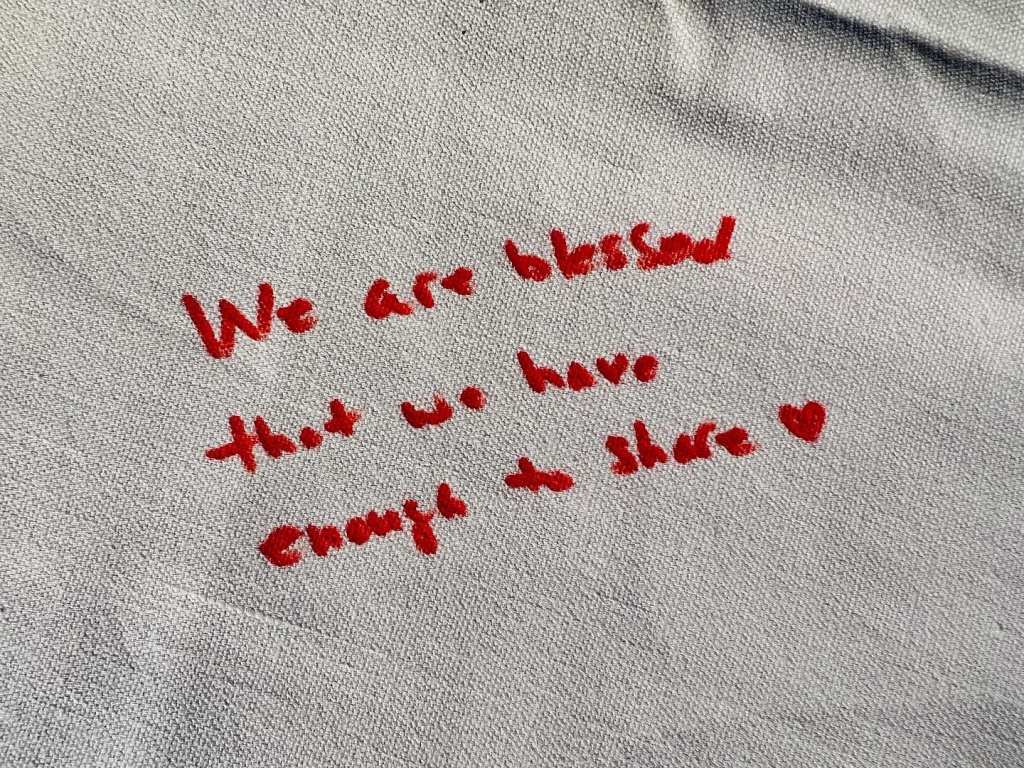 We are blessed
that we have
enough to share ♥